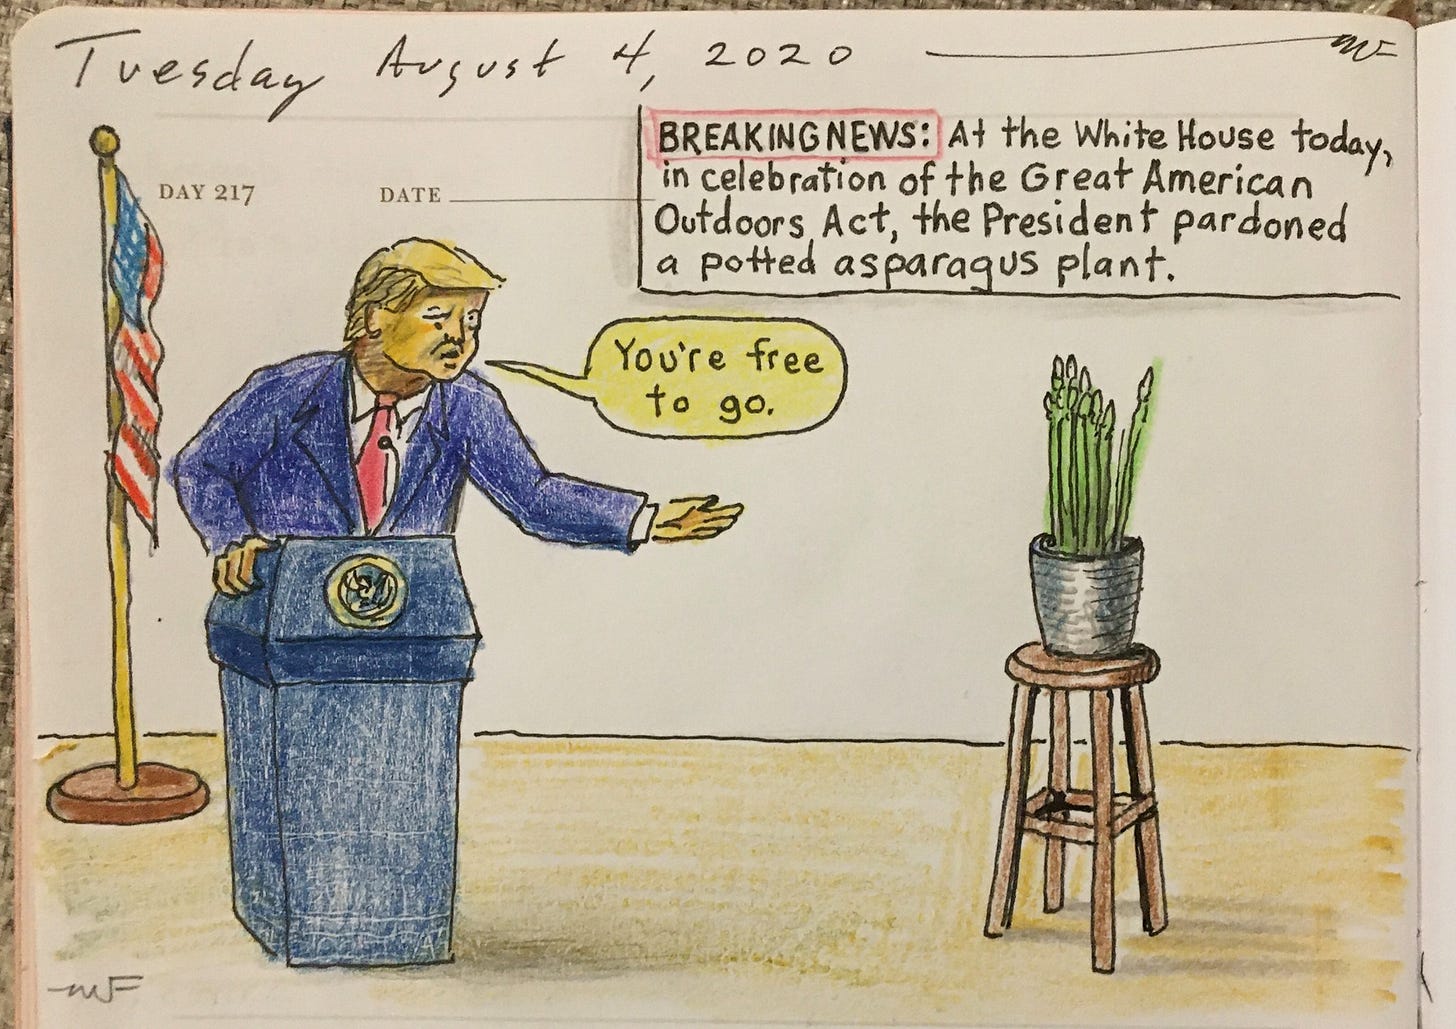 Tuesday August 4, 2020
DAY 217 DATE
BREAKING NEWS: At the White House today,
in celebration of the Great American
Outdoors Act, the President pardoned
a potted asparagus plant.
You're free
to go.
MF